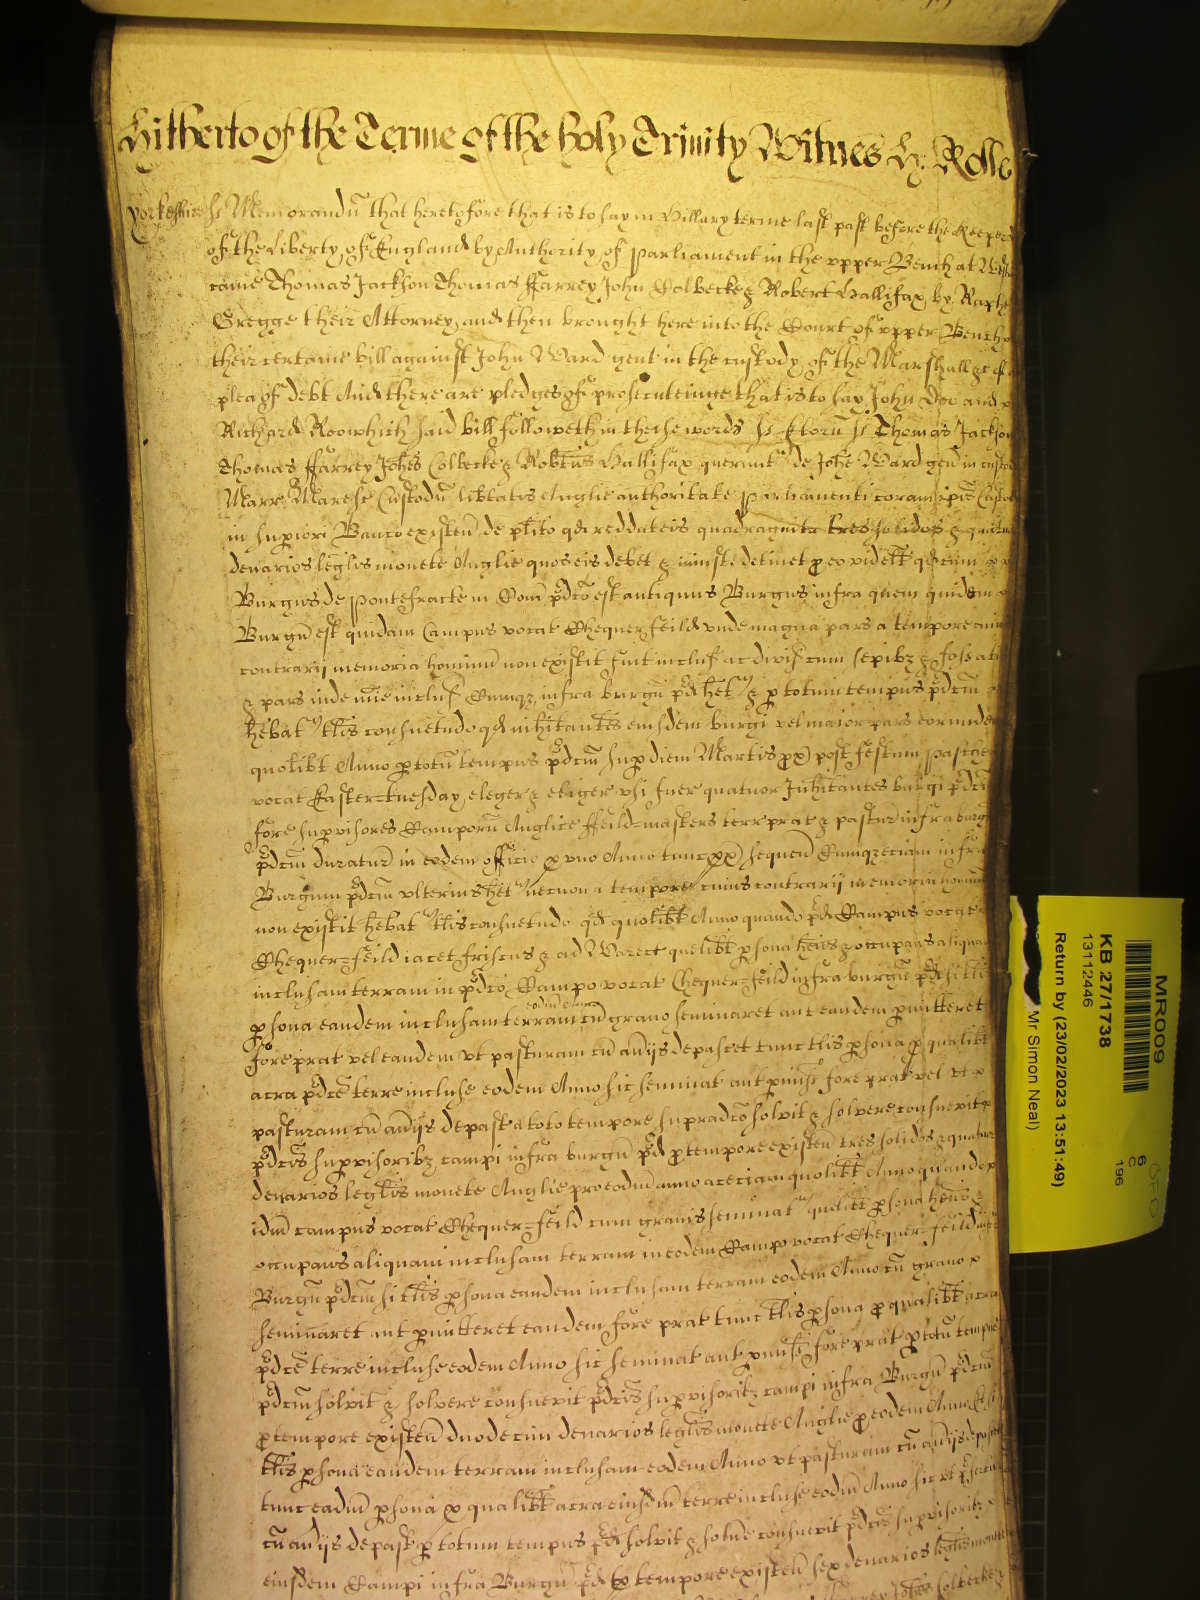 Hitherto of the Terme of the holy Trinity Witnes H: Rolle
Yorkeshire ss Memorandū that heretofore that is to say in Hillary terme last past before the Keepers
of the Liberty of England by Authority of Parliament in the vpper Bench at
came Thomas Jackson Thomas ffarrey John Colbecke & Robert Hallifax by
Gregge their Attorney and then brought here into the Court of vpper Bench
their certaine bill against John Ward gent in the custody of the Marshall &c of
plea of debt And there are pledges of prosecuteinge that is to say John Doe and
Richard Roo which said bill followeth in theise words ss Eborū ss Thomas Jackson
Thomas ffarrey Johēs Colbecke & Robtus Hallifax querunt de Johē Ward geñ in custod
Marr Maresc Custodū libtatis Anglie authoritate Parliamenti coram ipīs Custod
in supiori Banco existeñ de plito qđ reddat eis quadraginta tres solidos & quatuor
denarios leglis monete Anglie quos eis debet & iniuste detinet p eo videlt qđ cum
Burgus de Pontefracte in Coñi pđco est antiquus Burgus infra quem quidem
Burgū est quidam Campus vocat Chequer feild vnde magna pars a tempore cuius
contrarij memoria hominū non existit fuit inclus ac divis cum sepibz & fossatis
& pars inde nūc inclus Cumqz infra burgū pđ het & p totum tempus pđcm
hēbat tlis consuetudo qđ inhitantes eiusdem burgi vel maior pars eorundem
quolibt Anno p totū tempus pđcm sup diem Martis px post festum Pasche
vocat Easter=tuesday eleger & eliger vsi fuer quatuor Inhitantes burgi pđci
fore supvisores Camporū Anglice ffeild=masters terr prat & pastur infra burg
pđcm duratur in eodem officio p vno Anno tunc px sequeñ Cumqz eciam infra
Burgum pđcm vlterius het necnon a tempore cuius contrarij memoria hominū
non existit hēbat tlis consuetudo qđ quolibt Anno quando pđ Campus vocat
Chequer=feild iacet friscus & ad Warect quelibt psona hēns & occupans aliquam
inclusam terram in pđco Campo vocat Chequer=feild infra burgū pđ si tlis
eodem Anno
psona eandem inclusam terram cū grano seminaret aut eandem pmitteret
fore prat vel eandem vt pasturam cū aūijs depascet tunc tlis psona p qualibt
acra pđce terre incluse eodem Anno sic seminat aut pmiss fore prat vel vt
pasturam cū aūijs depast a toto tempore supradco solvit & solvere consuevit
pđcis supvisoribz campi infra burgū pđ p tempore existeñ tres solidos & quatuor
denarios leglis monete Anglie pro eodm anno ac eciam quolibt Anno quando
idm campus vocat Chequer=feild cum granis seminat quelibt psona hēns &
occupans aliquam inclusam terram in eodem Campo vocat Chequer=feild infra
Burgū pđcm si tlis psona eandem inclusam terram eodem Anno cū grano
seminaret aut pmitteret eandem fore prat tunc tlis psona p qualibt acra
pđce terre incluse eodem Anno sic seminat aut pmiss fore prat p totū tempus
pđcm solvit & solvere consuevit pđcis supvisoribz campi infra Burgū pđcm
p tempore existeñ duodecim denarios leglis monete Anglie p eodem Anno Et si
tlis psona eandem terram inclusam eodem Anno vt pasturam cū aūijs depascet
tunc eadm psona p qualibt acra eiusdm terre incluse eodm Anno sic vt
cū aūijs depast p totum tempus pđ solvit & solūe consuevit pđcis supvisoribz
eiusdem Campi infra Burgū pđ p tempore existeñ sex denarios leglis monete
Johēs Colbecke
MR009
KB 27/1738
13112446
Return by (23/02/2023 13:51:49)
Mr Simon Neal)
6
C
196